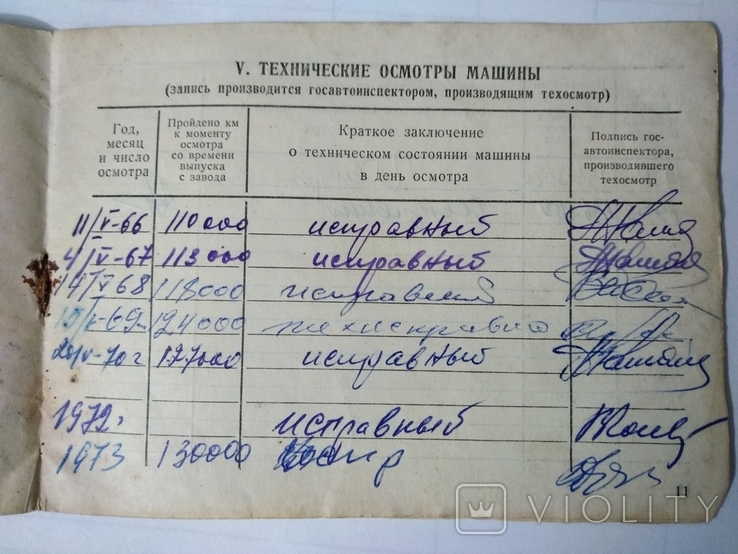 V. ТЕХНИЧЕСКИЕ ОСМОТРЫ МАШИНЫ
(запись производится госавтоинспектором, производящим техосмотр)
Год, месяц и число осмотра
Пройдено км к моменту осмотра со времени выпуска с завода
Краткое заключение о техническом состоянии машины в день осмотра
Подпись гос-автоинспектора, производившего техосмотр
11/V-66 110000 исправный
4/V-67 113000 исправный
14/V 68 118000 исправный
124000 техисправно
70г 127000 исправный
1972г исправный
1973 130000
11
VIOLITY